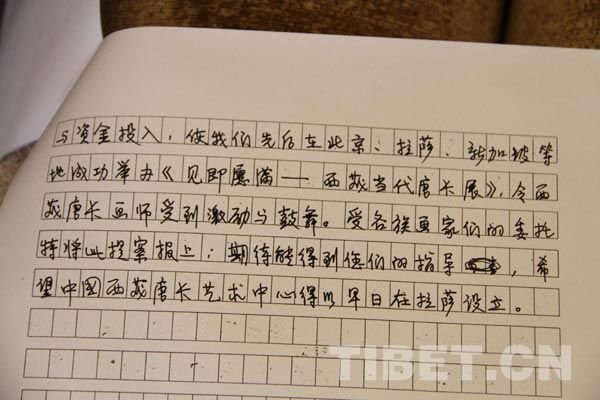 与资金投入，使我们先后在北京、拉萨、新加坡等
地成功举办《见即愿满——西藏当代唐卡展》，令西
藏唐卡画师受到激励与鼓舞。受各族画家们的委托
特将此提案报上；期待能得到您们的指导，希
望中国西藏唐卡艺术中心得以早日在拉萨设立。
TIBET.CN